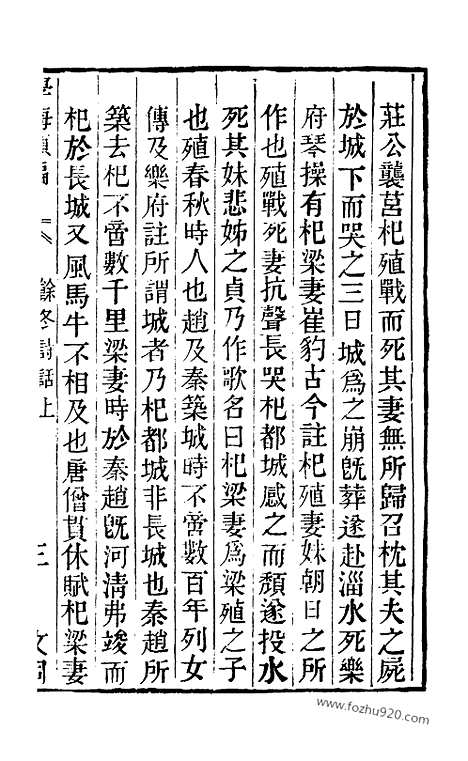 莊公襲莒杞殖戰而死其妻無所歸召枕其夫之屍
於城下而哭之三日城爲之崩旣葬遂赴淄水死樂
府琴操有杞梁妻崔豹古今註杞殖妻妹朝日之所
作也殖戰死妻抗聲長哭杞都城感之而頹遂投水
死其妹悲姊之貞乃作歌名曰杞梁妻爲梁殖之子
也殖春秋時人也趙及秦築城時不啻數百年列女
傳及樂府註所謂城者乃杞都城非長城也秦趙所
築去杞不啻數千里梁妻時於秦趙旣河清弗竣而
杞於長城又風馬牛不相及也唐僧貫休賦杞梁妻
學海類編
餘冬詩話上
三
www.fozhu920.com